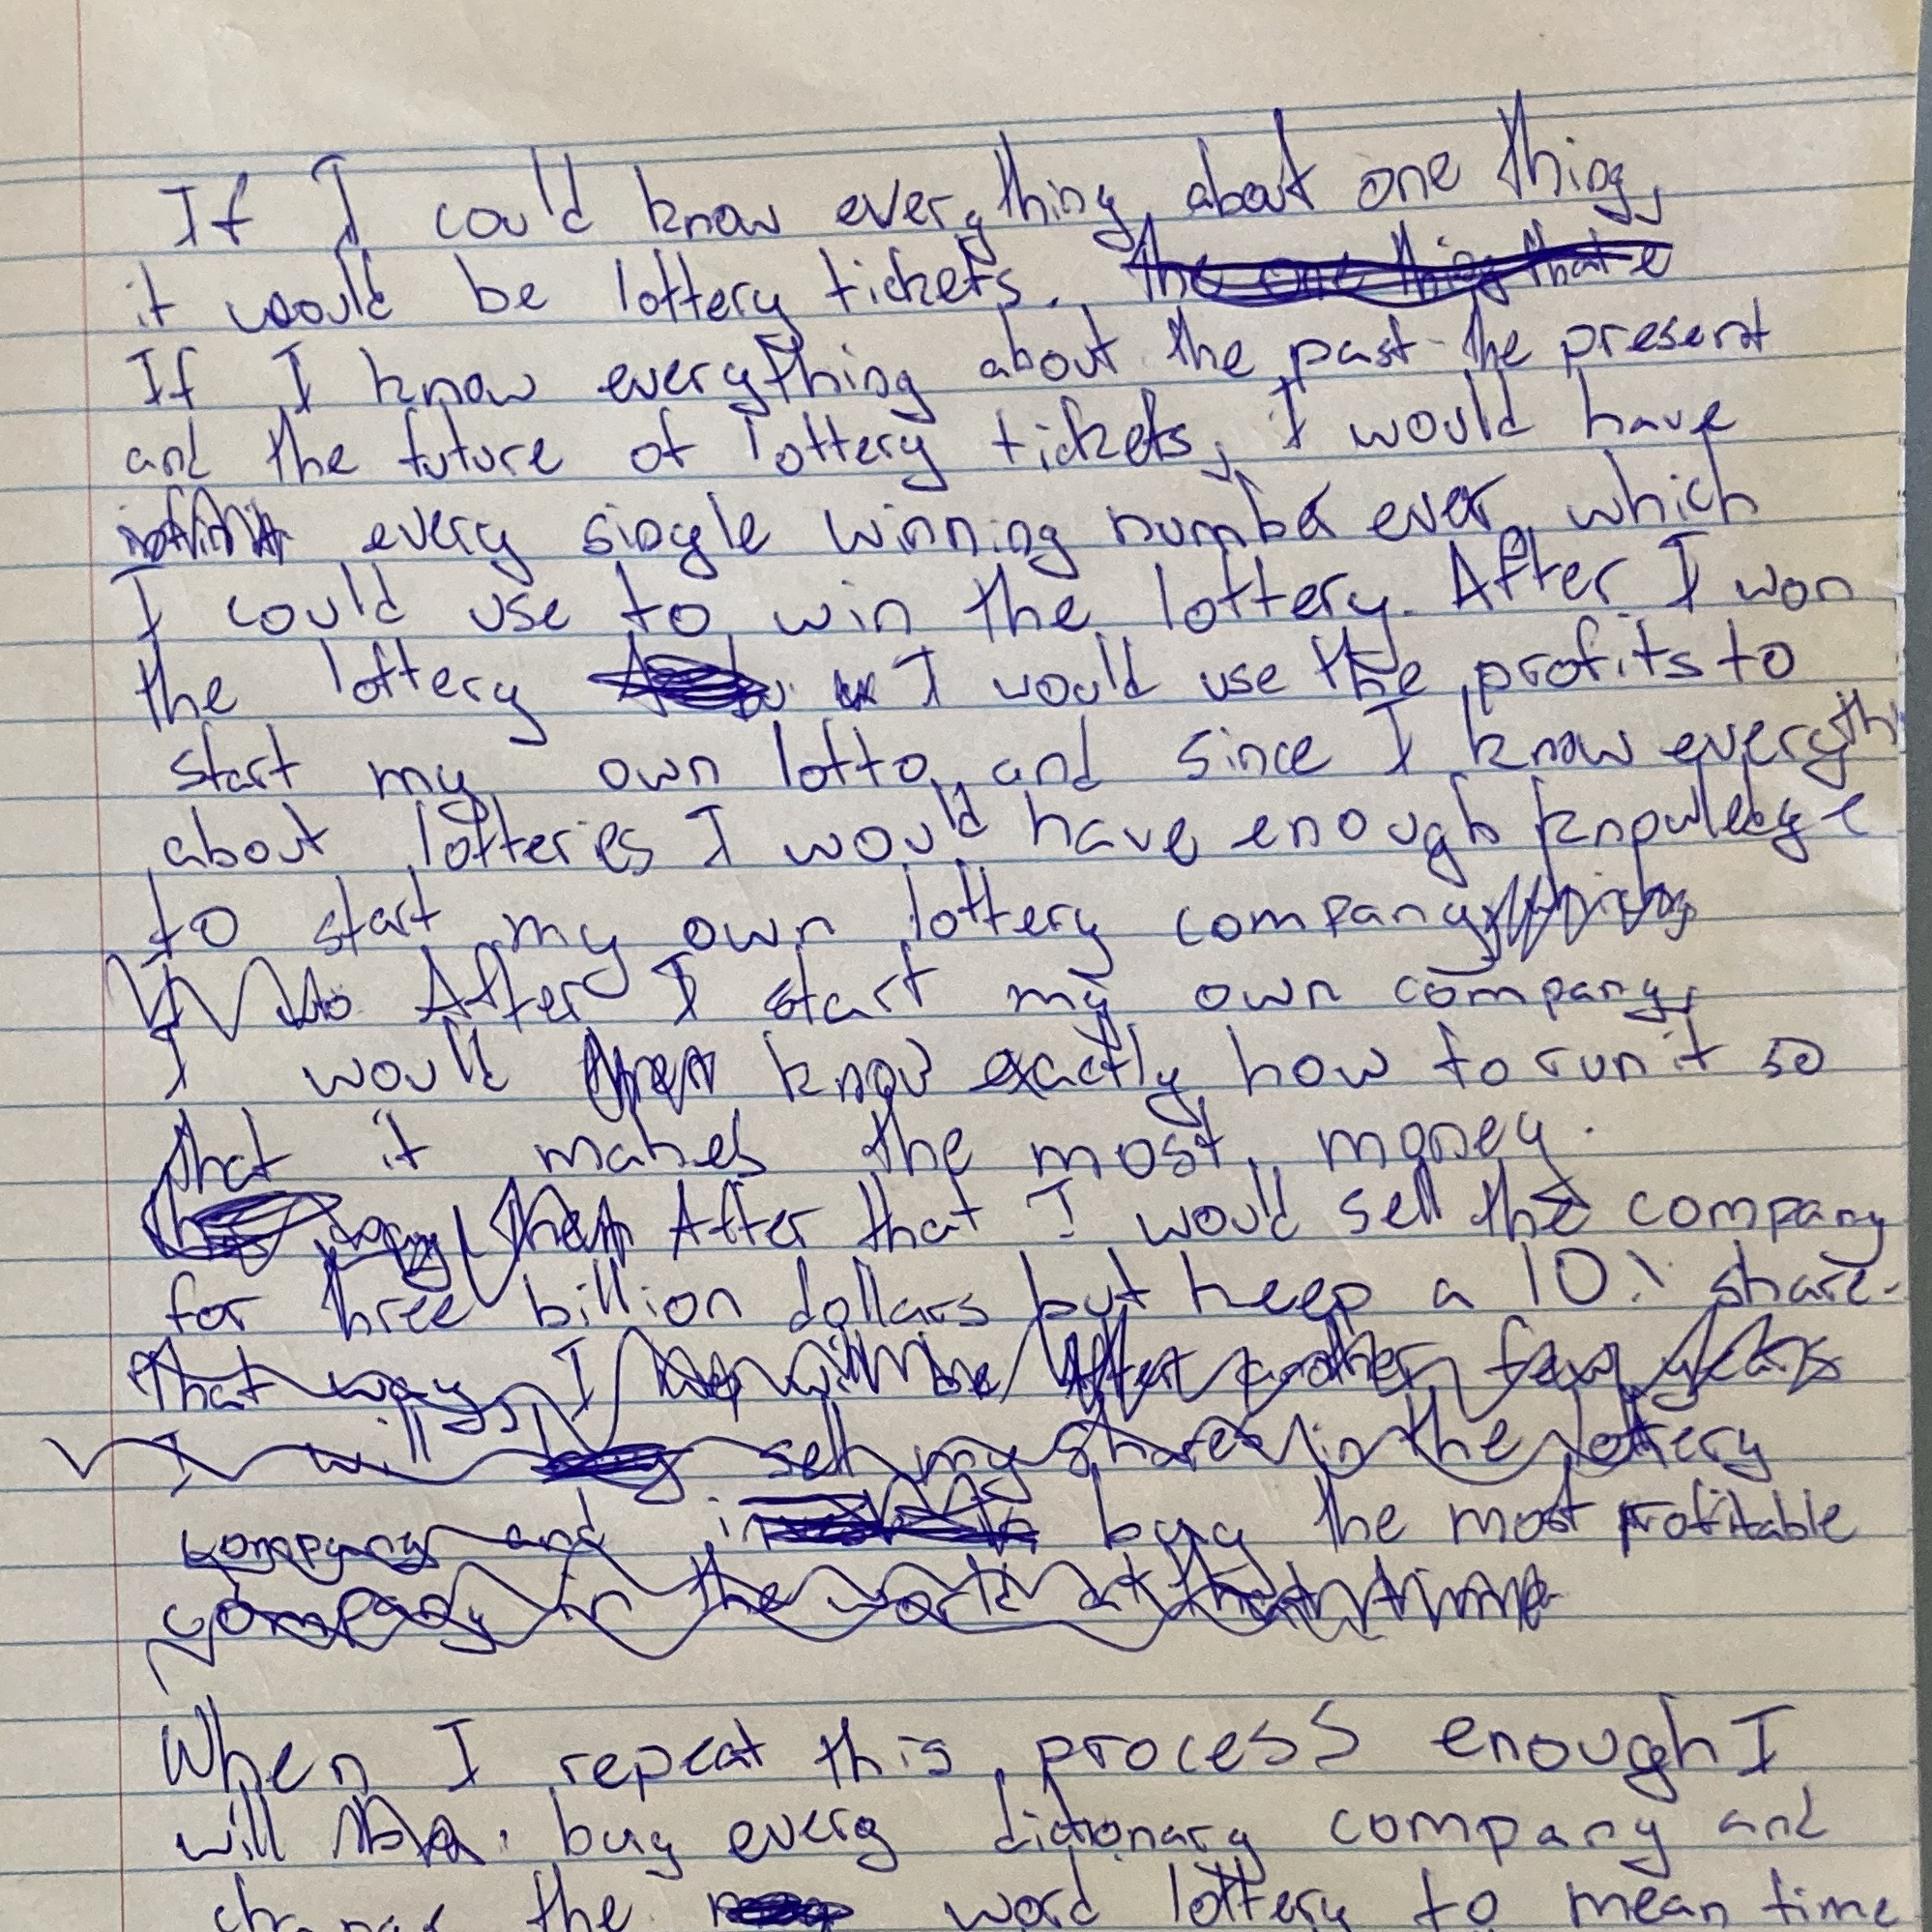 If I could know everything about one thing,
it would be lottery tickets. the one thing that e
If I know everything about the past the present
and the future of lottery tickets, I would have
every single winning number ever which
I could use to win the lottery. After I won
the lottery I would use the profits to
start my own lotto and since I know everyth
about lotteries I would have enough knowledge
to start my own lottery company
After I start my own company,
I would know exactly how to run it so
that it makes the most money.
After that I would sell the company
for three billion dollars but keep a 10% share.
That way I will be After another few years
I will sell my shares in the lottery
company and buy the most profitable
company in the world at that time
When I repeat this process enough I
will buy every dictionary company and
change the word lottery to mean time